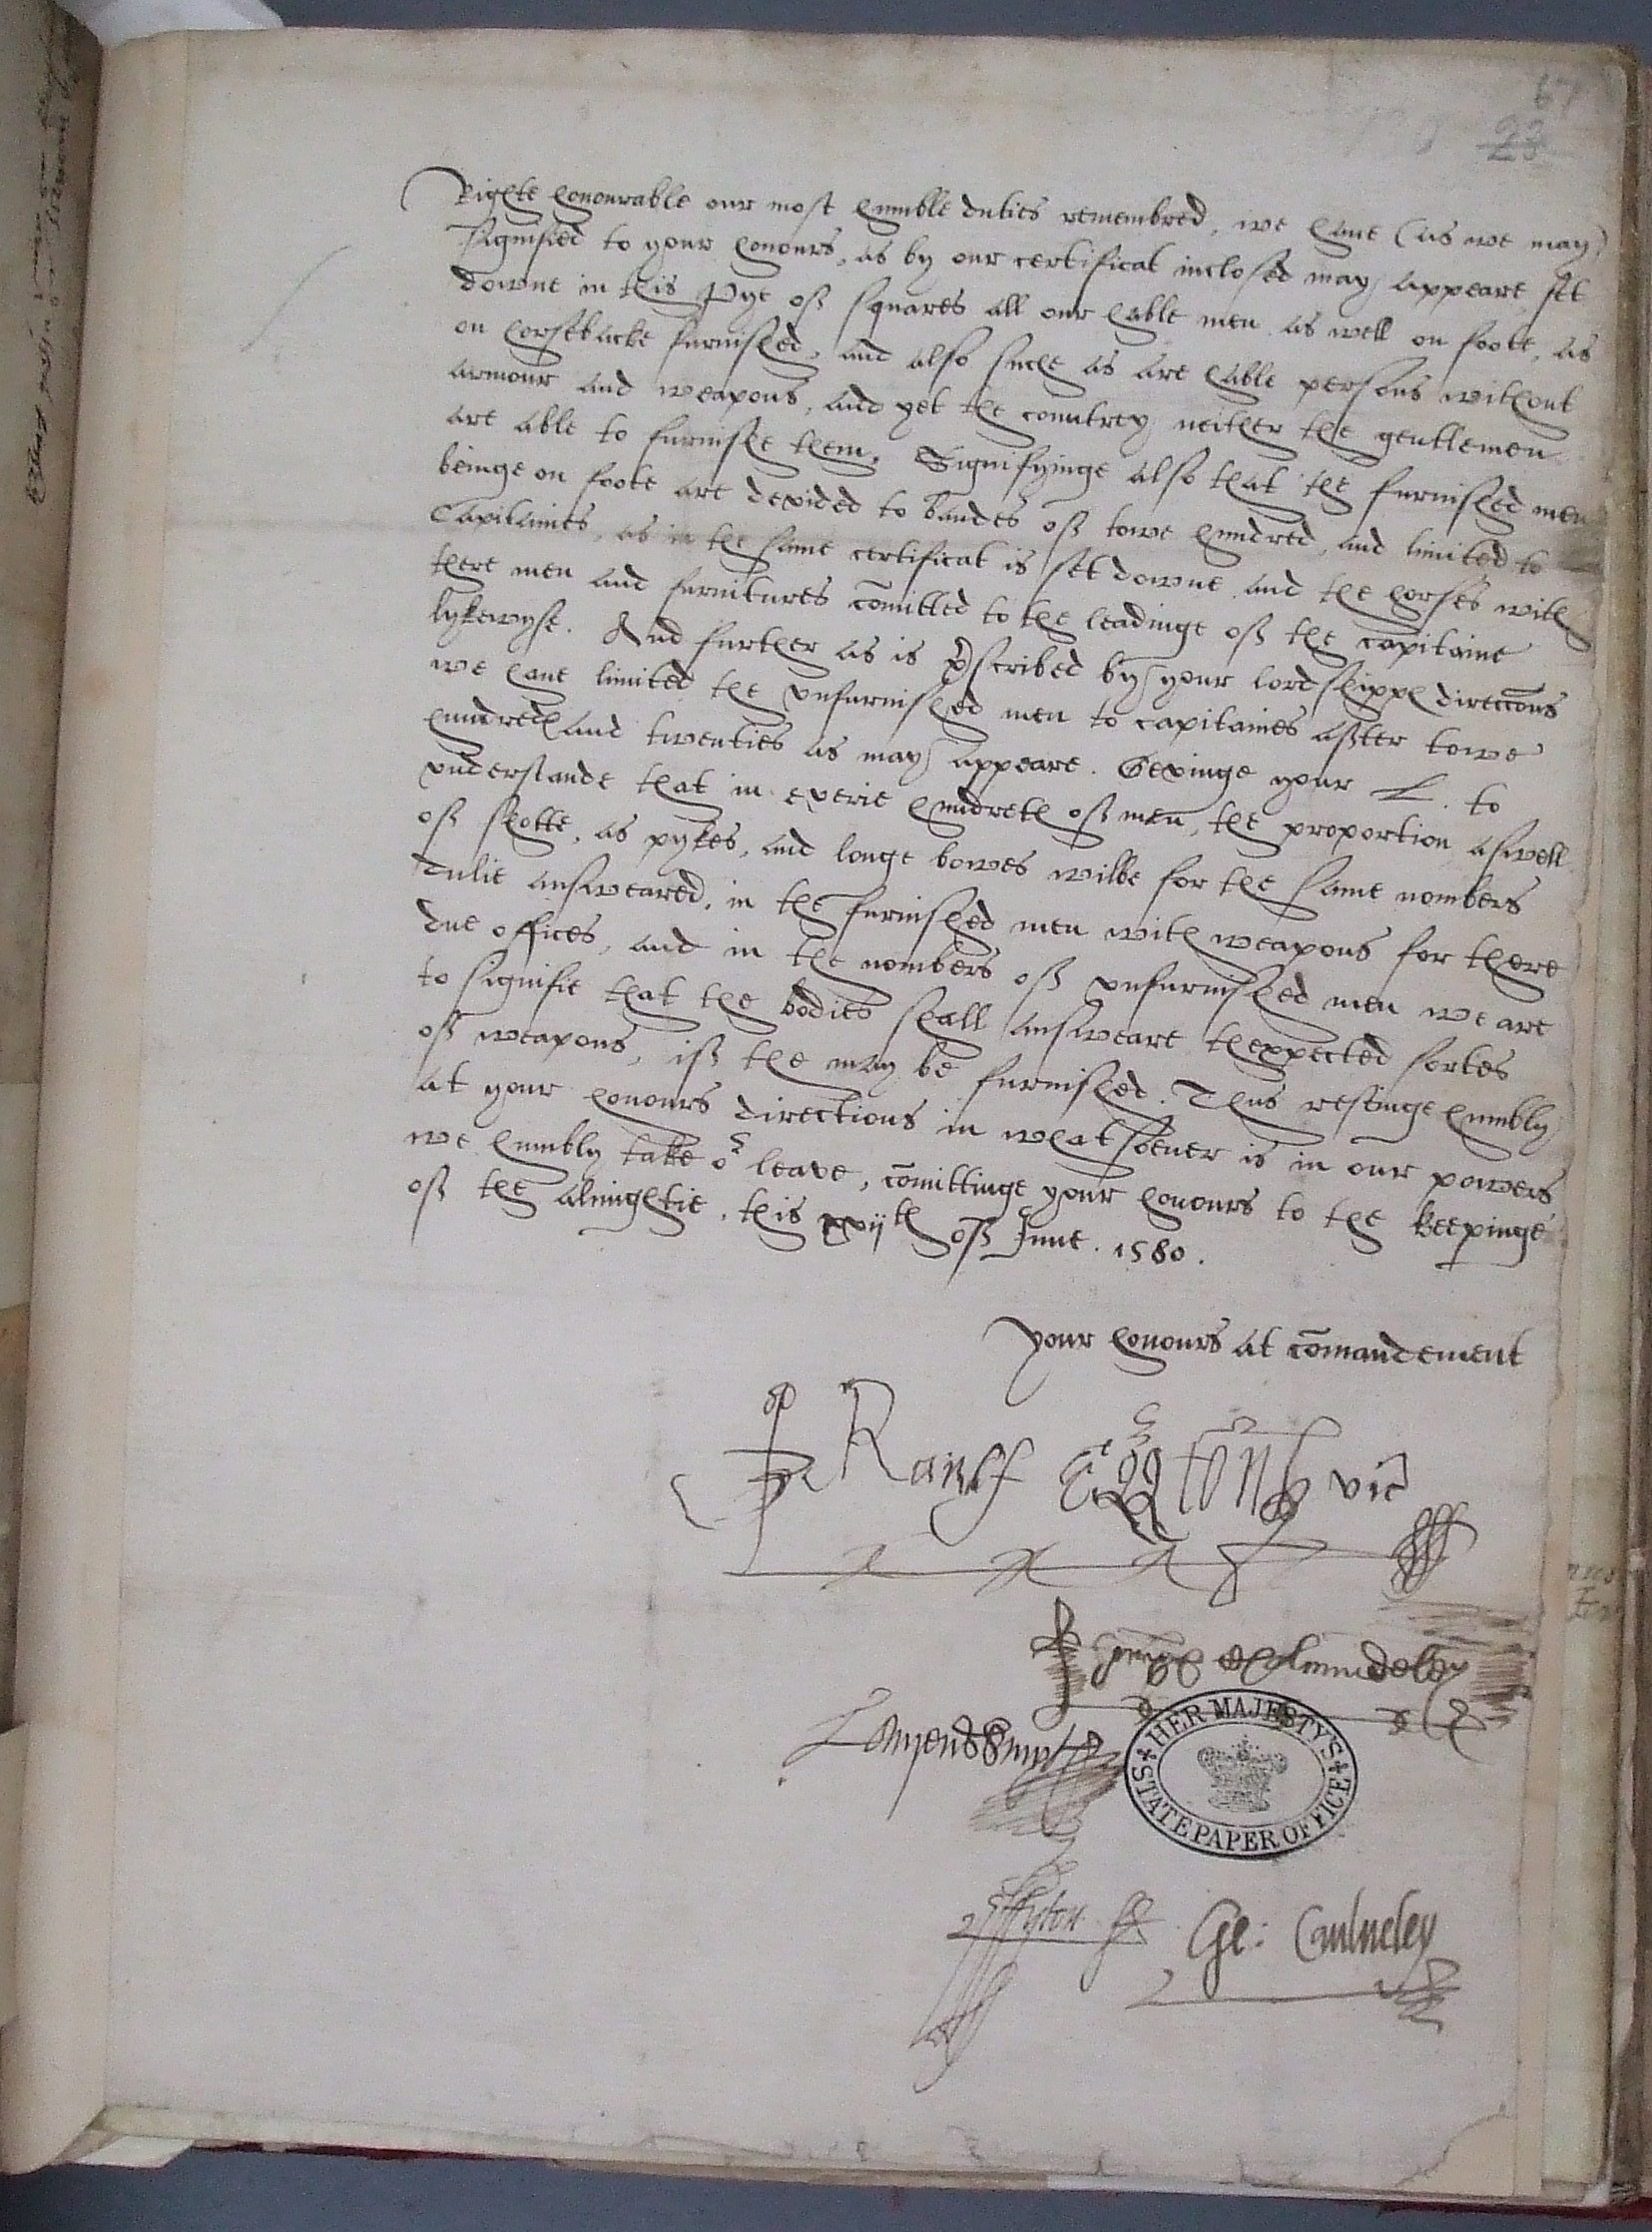 67
23
Righte honourable our most humble duties remembred, we haue (as we may)
signified to your honours, as by our certificat inclosed may appeare, set
downe in this Pye off squares all our hable men as well on foote, as
on horsebacke furnished, and also suche as are hable persons without
armour and weapons, and yet the countrey neither the gentlemen
are able to furnishe them. Signifyinge also that the furnished men
beinge on foote are devided to bandes off towe hundred, and limited to
Capitaines, as in the same certificat is set downe and the horses with
there men and furnitures cōmitted to the leadinge off the capitaine
lykewyse. And further as is p̄scribed by your lordshipps directōns
we haue limited the vnfurnished men to capitaines after towe
hundreth and twenties as may appeare. Gevinge your L. to
vnderstande that in everie hundreth off men, the proportion aswell
off shotte, as pykes, and longe bowes wilbe for the same nombers
dulie answeared, in the furnished men with weapons for there
due offices, and in the nombers off vnfurnished men we are
to signifie that the bodies shall answeare thexpected sortes
off weapons, iff the may be furnished. Thus restinge humbly
at your honours directions in whatsoeuer is in our powers
we humbly take oʳ leave, cōmittinge your honours to the keepinge
off the almightie. this xvijth off June. 1580.
your honours at cōmandement
Rauff Eggtō vic
Calmeley
Laurence Smyth
ffyton Ge: Caulueley
HER MAJESTY'S
STATE PAPER OFFICE